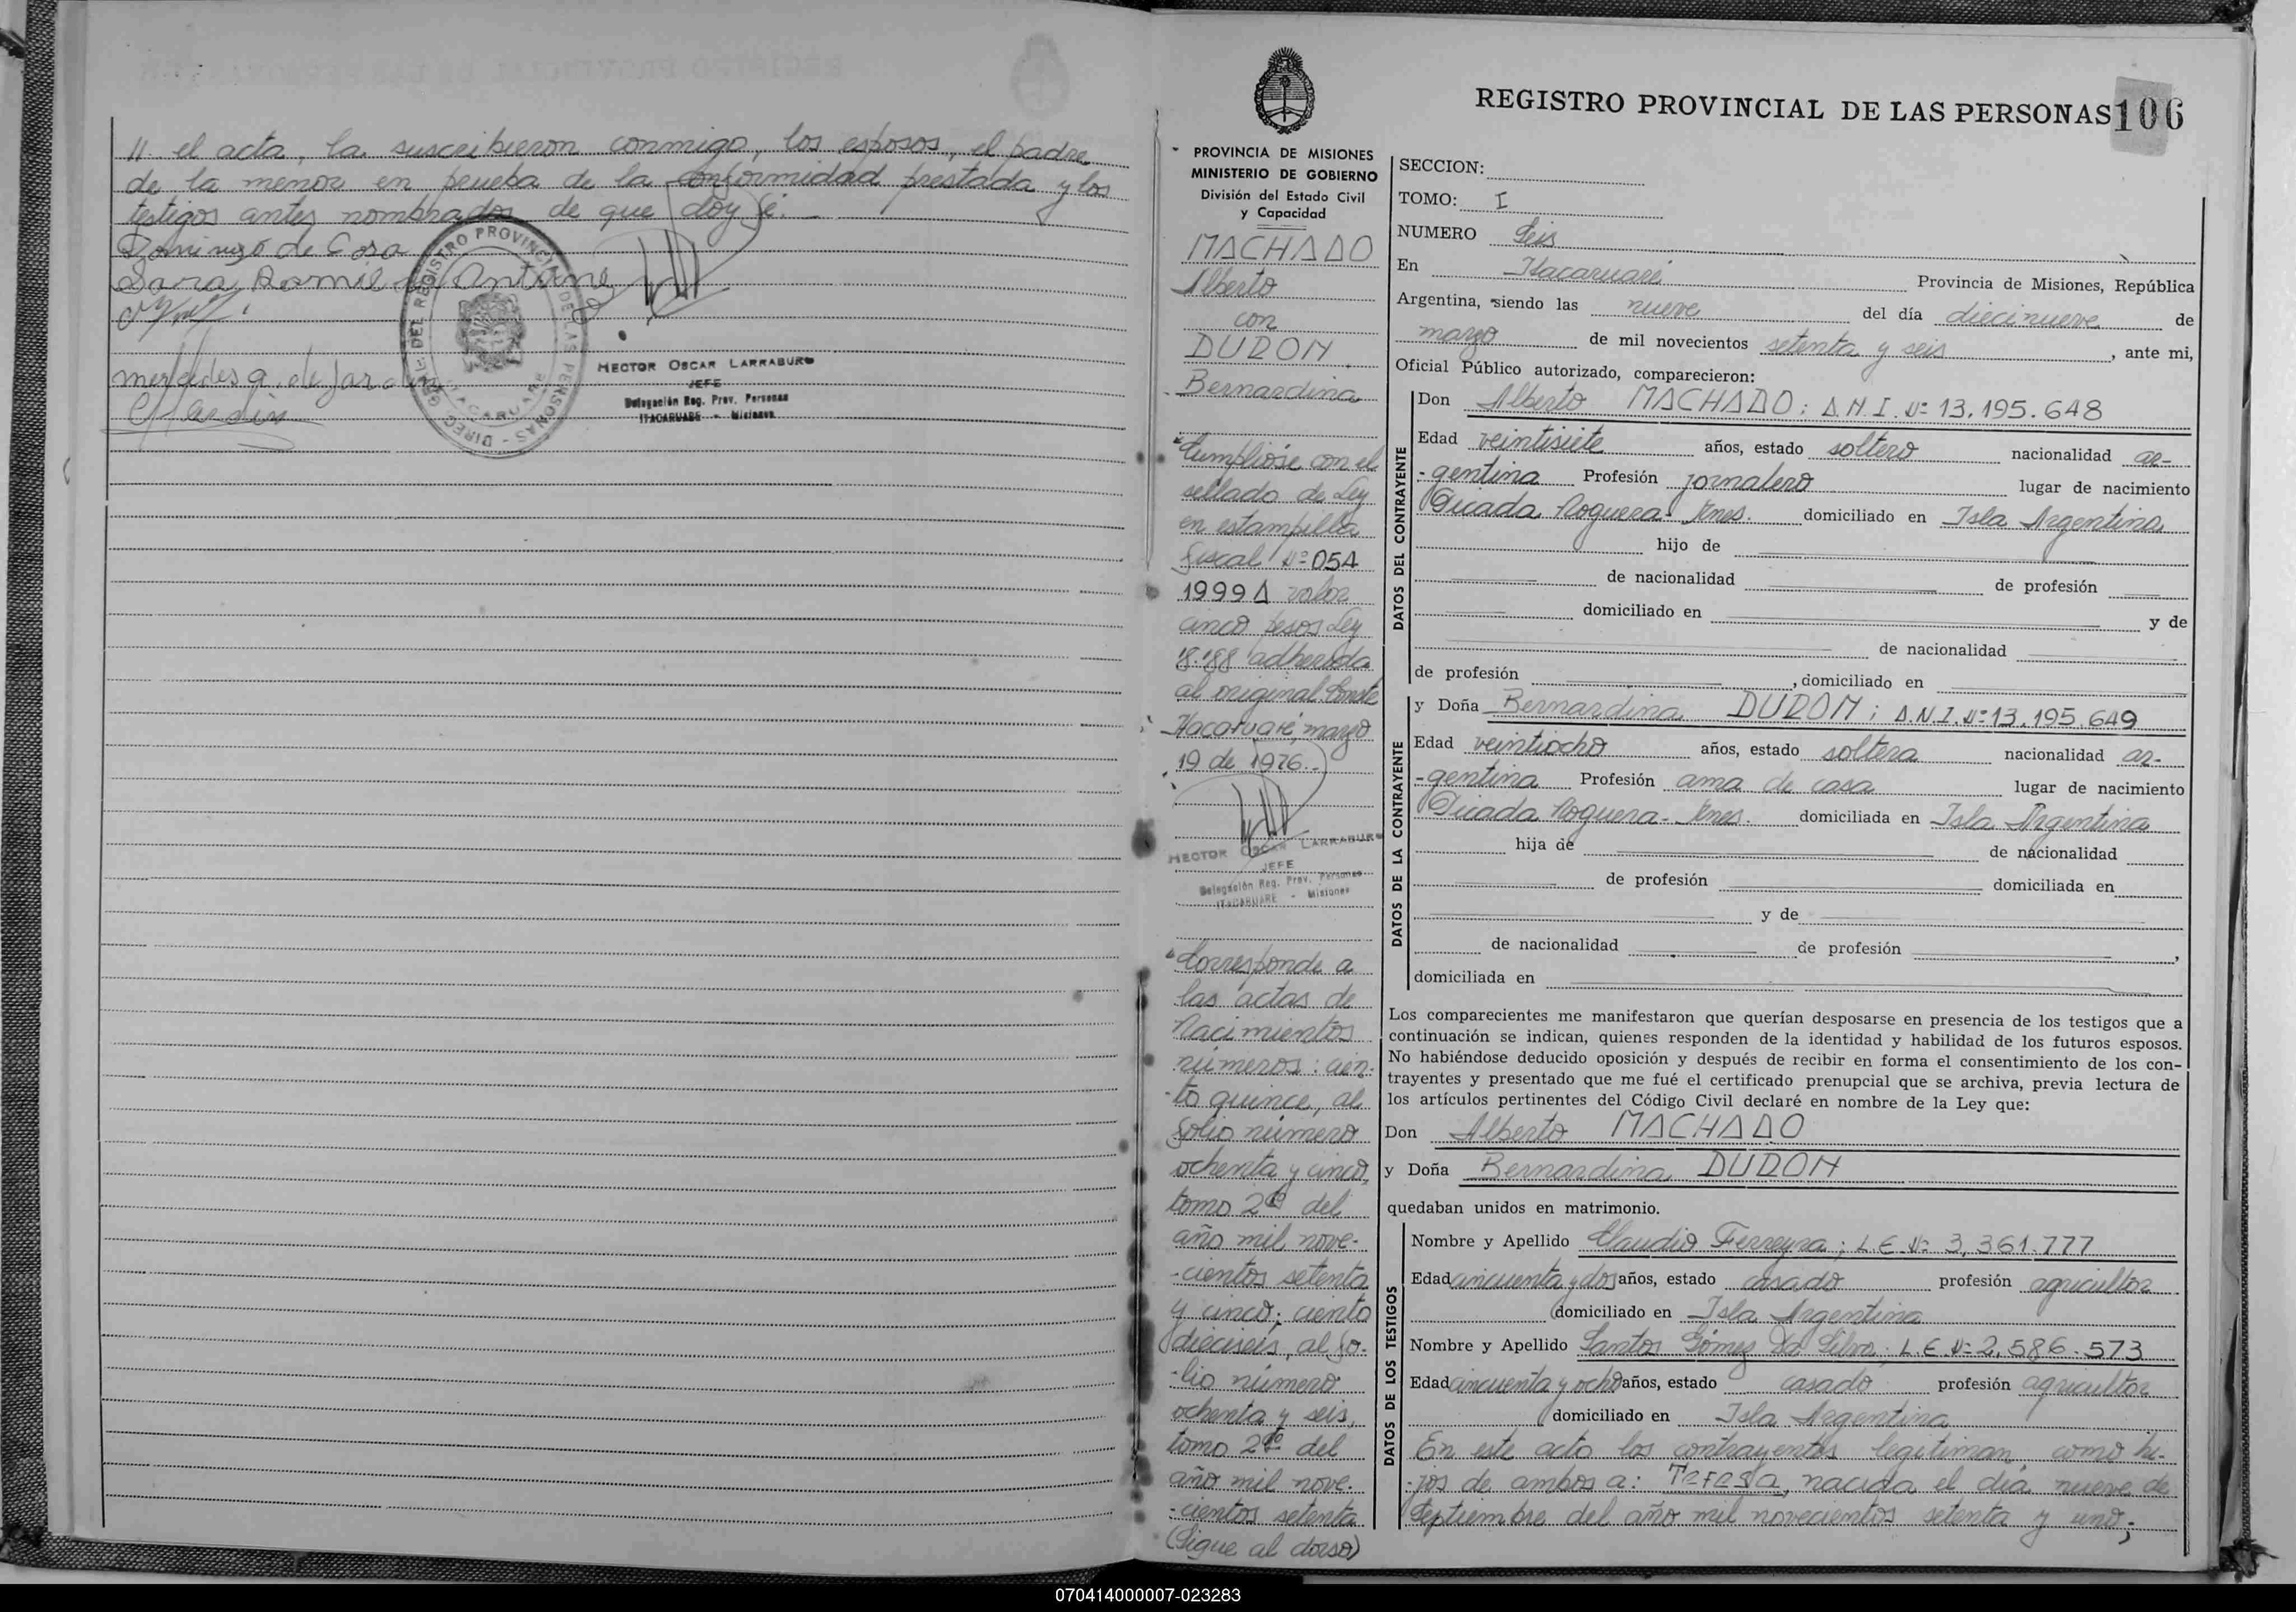 // el acta, la suscribieron conmigo, los esposos, el padre
de la menor en prueba de la conformidad prestada y los
testigos antes nombrados de que doy fé.
Domingo de
Sara Ramil Antunez
mercedes a. de Jardin
Jardin
HECTOR OSCAR LARRABURO
JEFE
Delegación Reg. Prov. Personas
ITACARUARE - Misiones
REGISTRO PROVINCIAL DE LAS PERSONAS 106
PROVINCIA DE MISIONES
MINISTERIO DE GOBIERNO
División del Estado Civil
y Capacidad
MACHADO
Alberto
con
DURON
Bernardina
"Cumplióse con el
sellado de Ley
en estampilla
fiscal Nº 054
1999 A valor
cinco pesos Ley
18.188 adherida
al original. Conste
Itacaruaré, marzo
19 de 1976.-
HECTOR OSCAR LARRABURO
JEFE
Delegación Reg. Prov. Personas
ITACARUARE - Misiones
"Corresponde a
las actas de
Nacimientos
números: cien-
-to quince, al
folio número
ochenta y cinco,
tomo 2do del
año mil nove-
-cientos setenta
y cinco; ciento
dieciseis, al fo-
-lio número
ochenta y seis,
tomo 2do del
año mil nove-
-cientos setenta
(Sigue al dorso)
SECCION:
TOMO: I
NUMERO Seis
En Itacaruaré Provincia de Misiones, República
Argentina, siendo las nueve del día diecinueve de
marzo de mil novecientos setenta y seis, ante mi,
Oficial Público autorizado, comparecieron:
DATOS DEL CONTRAYENTE
Don Alberto MACHADO; D.N.I. Nº 13.195.648
Edad veintisiete años, estado soltero nacionalidad ar-
-gentina Profesión jornalero lugar de nacimiento
Picada Noguera- Mnes. domiciliado en Isla Argentina
hijo de
de nacionalidad de profesión
domiciliado en y de
de nacionalidad
de profesión , domiciliado en
DATOS DE LA CONTRAYENTE
y Doña Bernardina DURON; D.N.I. Nº 13.195.649
Edad veintiocho años, estado soltera nacionalidad ar-
-gentina Profesión ama de casa lugar de nacimiento
Picada Noguera- Mnes. domiciliada en Isla Argentina
hija de de nacionalidad
de profesión domiciliada en
y de
de nacionalidad de profesión ,
domiciliada en
Los comparecientes me manifestaron que querían desposarse en presencia de los testigos que a
continuación se indican, quienes responden de la identidad y habilidad de los futuros esposos.
No habiéndose deducido oposición y después de recibir en forma el consentimiento de los con-
trayentes y presentado que me fué el certificado prenupcial que se archiva, previa lectura de
los artículos pertinentes del Código Civil declaré en nombre de la Ley que:
Don Alberto MACHADO
y Doña Bernardina DURON
quedaban unidos en matrimonio.
DATOS DE LOS TESTIGOS
Nombre y Apellido Claudio Ferreyra; L.E. Nº 3.361.777
Edad cincuenta y dos años, estado casado profesión agricultor
domiciliado en Isla Argentina
Nombre y Apellido Santos Gómez Da Silva; L.E. Nº 2.586.573
Edad cincuenta y ocho años, estado casado profesión agricultor
domiciliado en Isla Argentina
En este acto los contrayentes legitiman, como hi-
-jos de ambos a: TERESA, nacida el día nueve de
Septiembre del año mil novecientos setenta y uno;
070414000007-023283